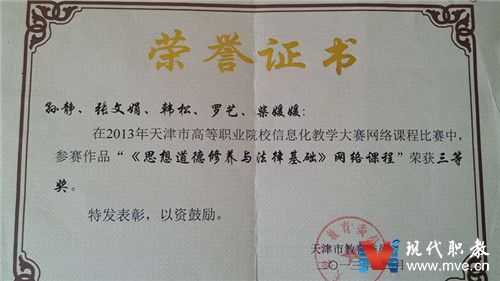 荣誉证书
孙静、张文娟、韩松、罗艺、柴媛媛：
在2013年天津市高等职业院校信息化教学大赛网络课程比赛中，
参赛作品“《思想道德修养与法律基础》网络课程”荣获三等
奖。
特发表彰，以资鼓励。
天津市教育
现代职教
www.mve.cn